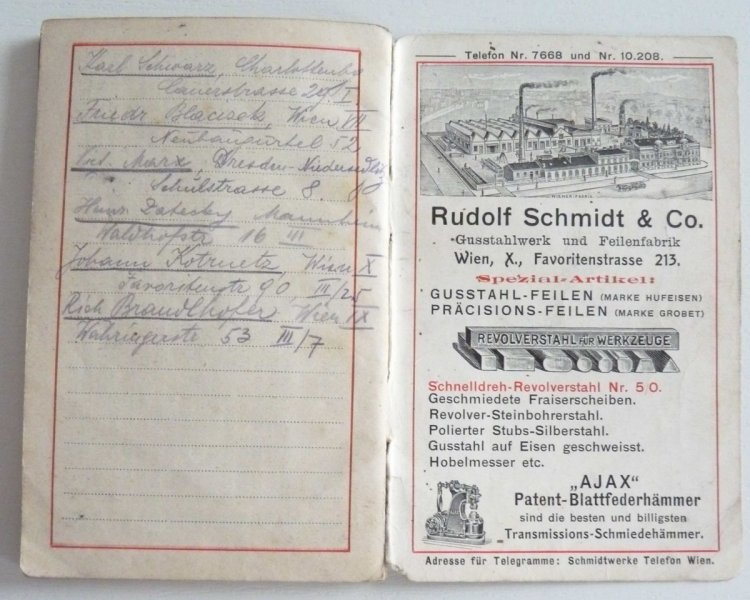 Karl Schwarz, Charlottenbu
Cauerstrasse 29/I
Friedr. Wien VII
Neubaugürtel 52
Marx Dresden-Niedersedlitz
Schulstrasse 8.
Heinz Mannheim
Waldhofstr 16 III
Johann Kotrnetz, Wien X
Favoritenstr 90 III/25
Rich Brandlhofer, Wien IX
53 III/7
Telefon Nr. 7668 und Nr. 10.208.
WIENER-FABRIK
Rudolf Schmidt & Co.
Gusstahlwerk und Feilenfabrik
Wien, X., Favoritenstrasse 213.
Spezial-Artikel:
GUSSTAHL-FEILEN (MARKE HUFEISEN)
PRÄCISIONS-FEILEN (MARKE GROBET)
REVOLVERSTAHL FÜR WERKZEUGE
Schnelldreh-Revolverstahl Nr. 50.
Geschmiedete Fraiserscheiben.
Revolver-Steinbohrerstahl.
Polierter Stubs-Silberstahl.
Gusstahl auf Eisen geschweisst.
Hobelmesser etc.
„AJAX“
Patent-Blattfederhämmer
sind die besten und billigsten
Transmissions-Schmiedehämmer.
Adresse für Telegramme: Schmidtwerke Telefon Wien.